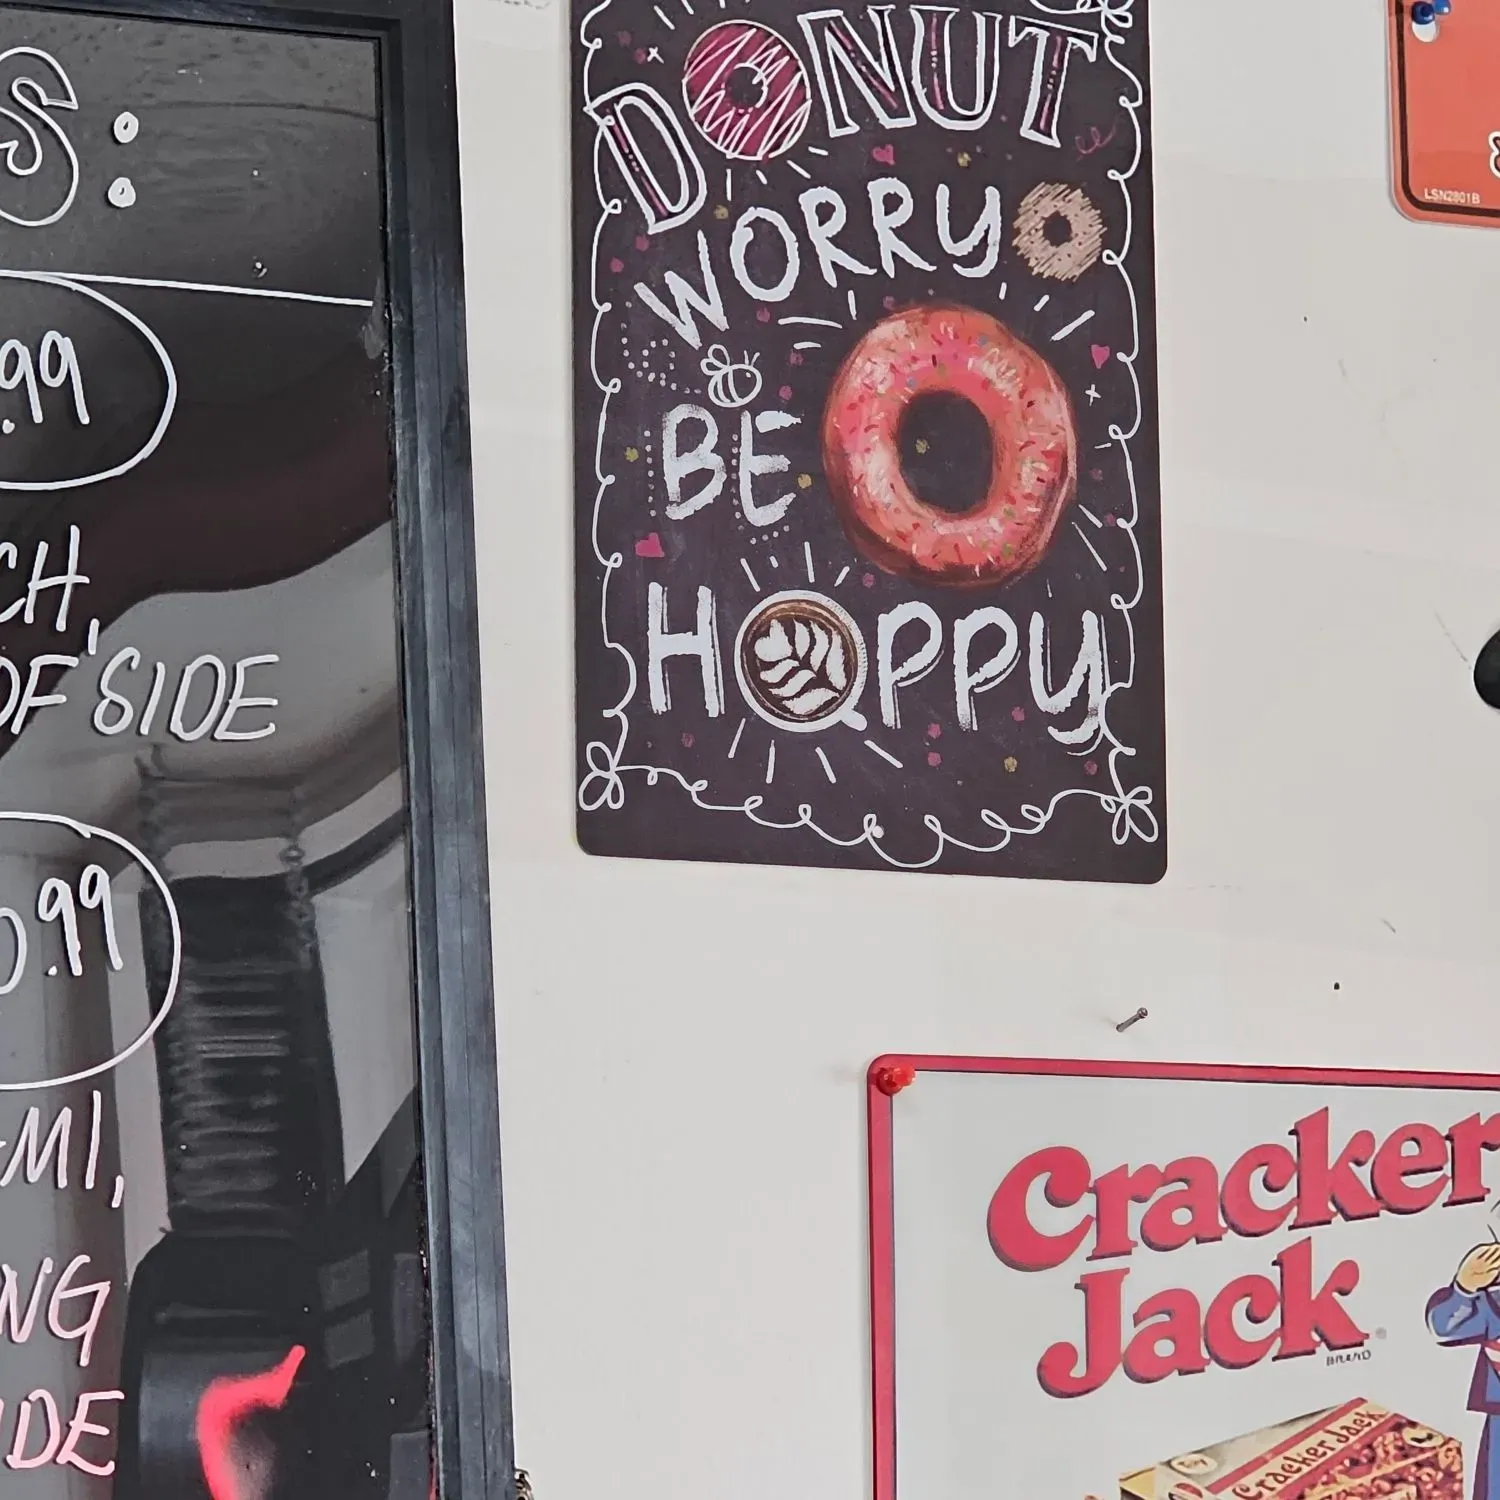 S:
.99
CH,
OF SIDE
0.99
EMI,
NG
IDE
DONUT
WORRY
BE
HAPPY
LSN2801B
Cracker
Jack®
BRAND
Cracker Jack